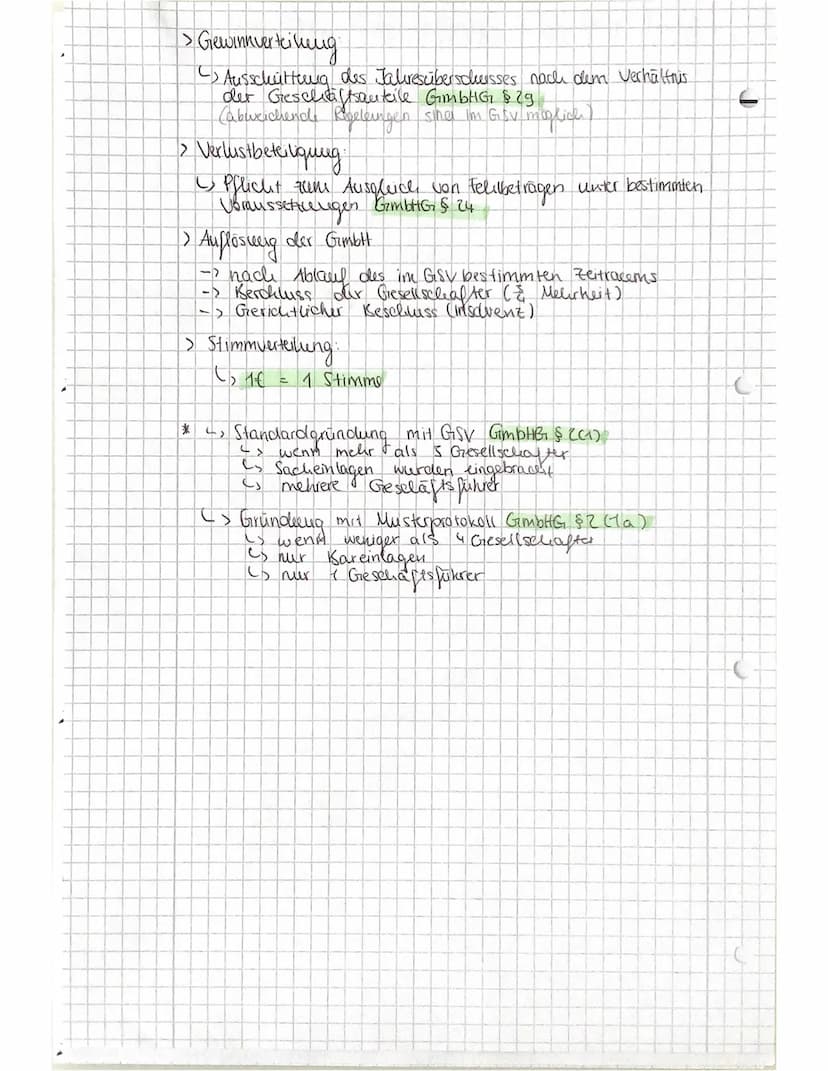 > Gewinnverteilung
↳ Ausschüttung des Jahresüberschusses nach dem Verhältnis
der Geschäftsanteile GmbHG § 29
(abweichende Regelungen sind im GSV möglich)
> Verlustbeteiligung:
↳ Pflicht zum Ausgleich von Fehlbeträgen unter bestimmten
Voraussetzungen GmbHG § 24
> Auflösung der GmbH
-> nach Ablauf des im GSV bestimmten Zeitraums
-> Beschluss der Gesellschafter (¾ Mehrheit)
-> Gerichtlicher Beschluss (Insolvenz)
> Stimmverteilung:
↳ 1€ = 1 Stimme
* ↳ Standardgründung mit GSV GmbHG § 2(1)
↳ wenn mehr als 3 Gesellschafter
↳ Sacheinlagen wurden eingebracht
↳ mehrere Geschäftsführer
↳ Gründung mit Musterprotokoll GmbHG § 2 (1a)
↳ wenn weniger als 4 Gesellschafter
↳ nur Bareinlagen
↳ nur 1 Geschäftsführer